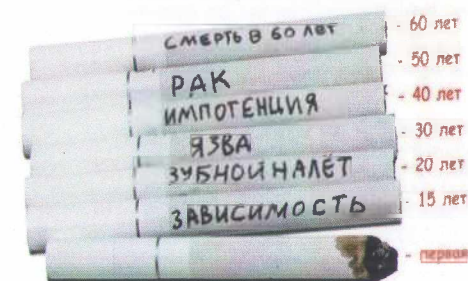 СМЕРТЬ В 60 ЛЕТ - 60 лет
РАК - 50 лет
ИМПОТЕНЦИЯ - 40 лет
ЯЗВА - 30 лет
ЗУБНОЙ НАЛЁТ - 20 лет
ЗАВИСИМОСТЬ - 15 лет
- первая